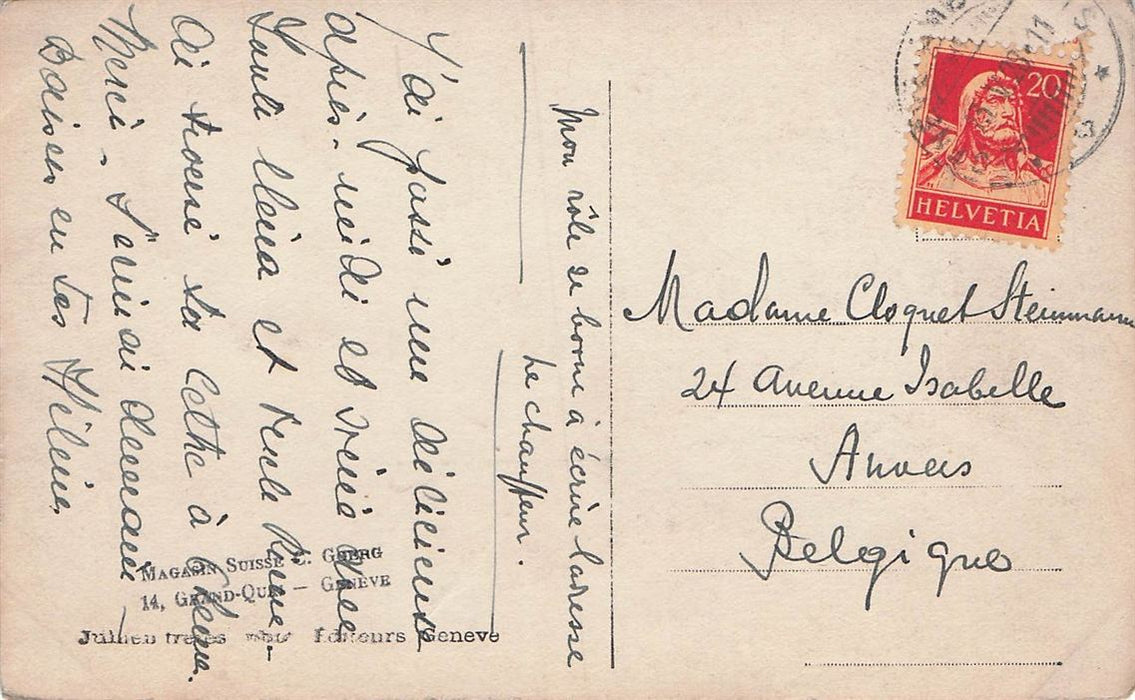 J'ai passé une délicieuse
après-midi et soirée avec
Tante Elena et Oncle
Ai trouvé ta lettre à
Merci. T'écrirai demain
Baisers en tas Hélène.
Mon rôle se borne à écrire l'adresse
Le chauffeur.
HELVETIA
20
Madame Cloquet Steinmann
24 Avenue Isabelle
Anvers
Belgique
MAGASIN SUISSE GEORG
14, GRAND-QUAI — GENÈVE
Jullien frères Éditeurs Geneve